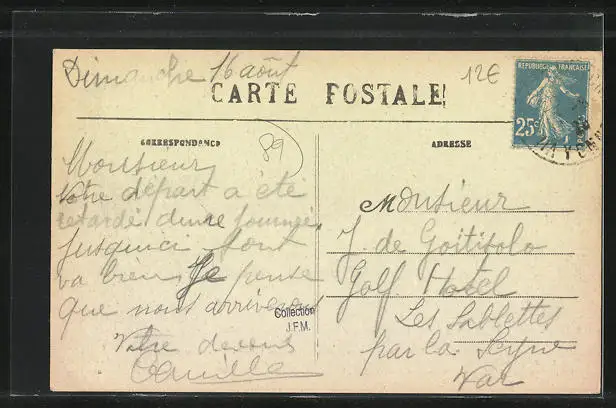 Dimanche 16 août
12€
CARTE POSTALE
REPUBLIQUE FRANÇAISE
25c
CORRESPONDANCE
89
ADRESSE
Monsieur
Votre départ a été
retardé d'une journée
jusqu'ici tout
va bien Je pense
que nous arriverons
Votre
Camille
Collection
J.F.M.
Monsieur
J. de Goitifolo
Golf Hotel
Les Sablettes
par la Seyne
Var